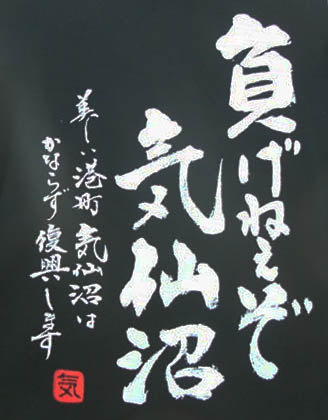 負げねぇぞ
気仙沼
美しい港町 気仙沼は
かならず復興します
気